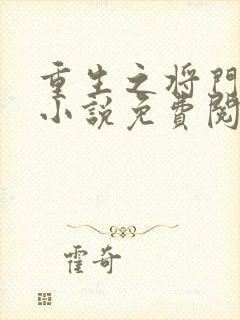 重生之将門
小說免費閱
霍奇